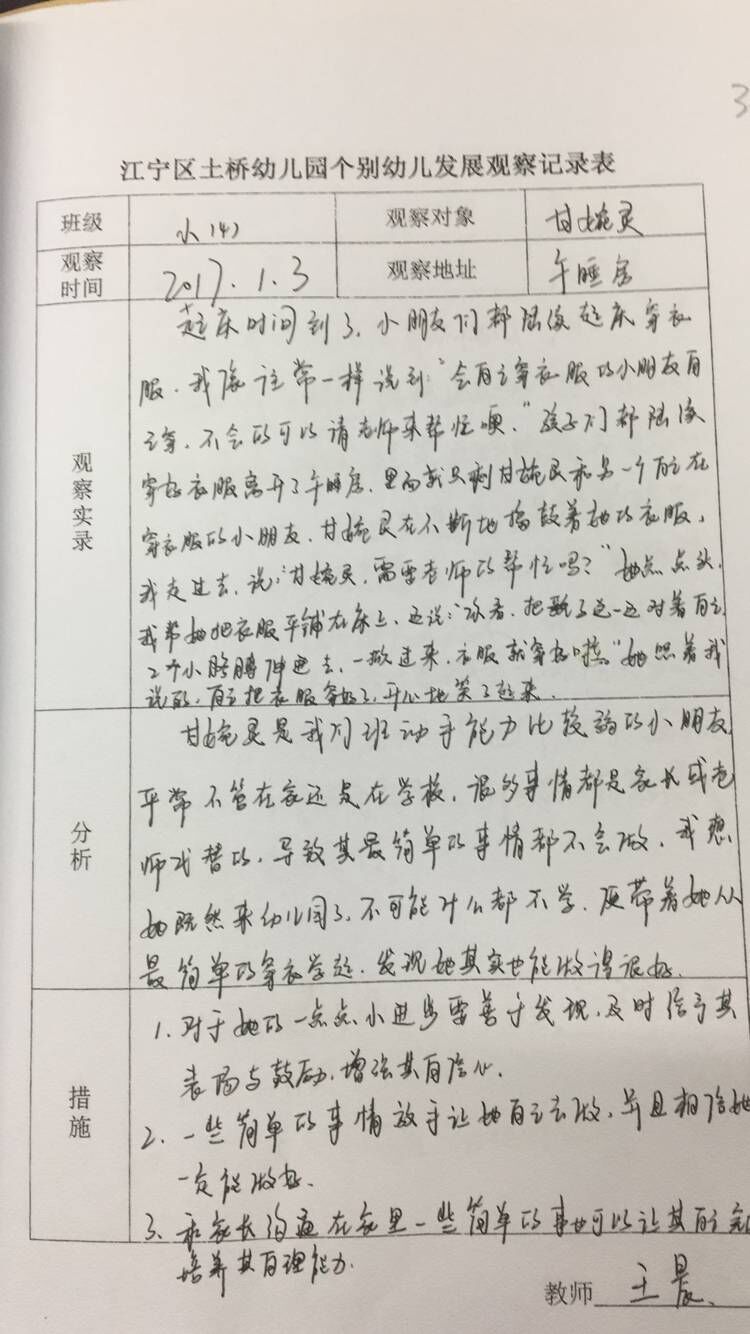 3
江宁区土桥幼儿园个别幼儿发展观察记录表
班级 小(4) 观察对象 甘婉灵
观察时间 2017.1.3 观察地址 午睡房
观察实录
起床时间到了,小朋友们都陆续起床穿衣
服,我像往常一样说到:“会自己穿衣服的小朋友自
己穿,不会的可以请老师来帮忙噢。”孩子们都陆续
穿好衣服离开了午睡房,里面就只剩甘婉灵和另一个自己在
穿衣服的小朋友,甘婉灵在不断地捣鼓着她的衣服,
我走过去,说:“甘婉灵,需要老师的帮忙吗?”她点点头,
我帮她把衣服平铺在床上,还说:“你看,把这一边对着自己,
2个小胳膊伸进去,一掀过来,衣服就穿好啦。”她照着我
说的,自己把衣服穿好了,开心地笑了起来。
分析
甘婉灵是我们班动手能力比较弱的小朋友,
平常不管在家还是在学校,很多事情都是家长或老
师代替的,导致其最简单的事情都不会做,我想
她既然来幼儿园了,不可能什么都不学,便带着她从
最简单的穿衣学起,发现她其实也能做得很好。
措施
1.对于她的一点点小进步要善于发现,及时给予其
表扬与鼓励,增强其自信心。
2.一些简单的事情放手让她自己去做,并且相信她
一定能做好。
3.和家长沟通在家里一些简单的事也可以让其自己
培养其自理能力.
教师 王晨